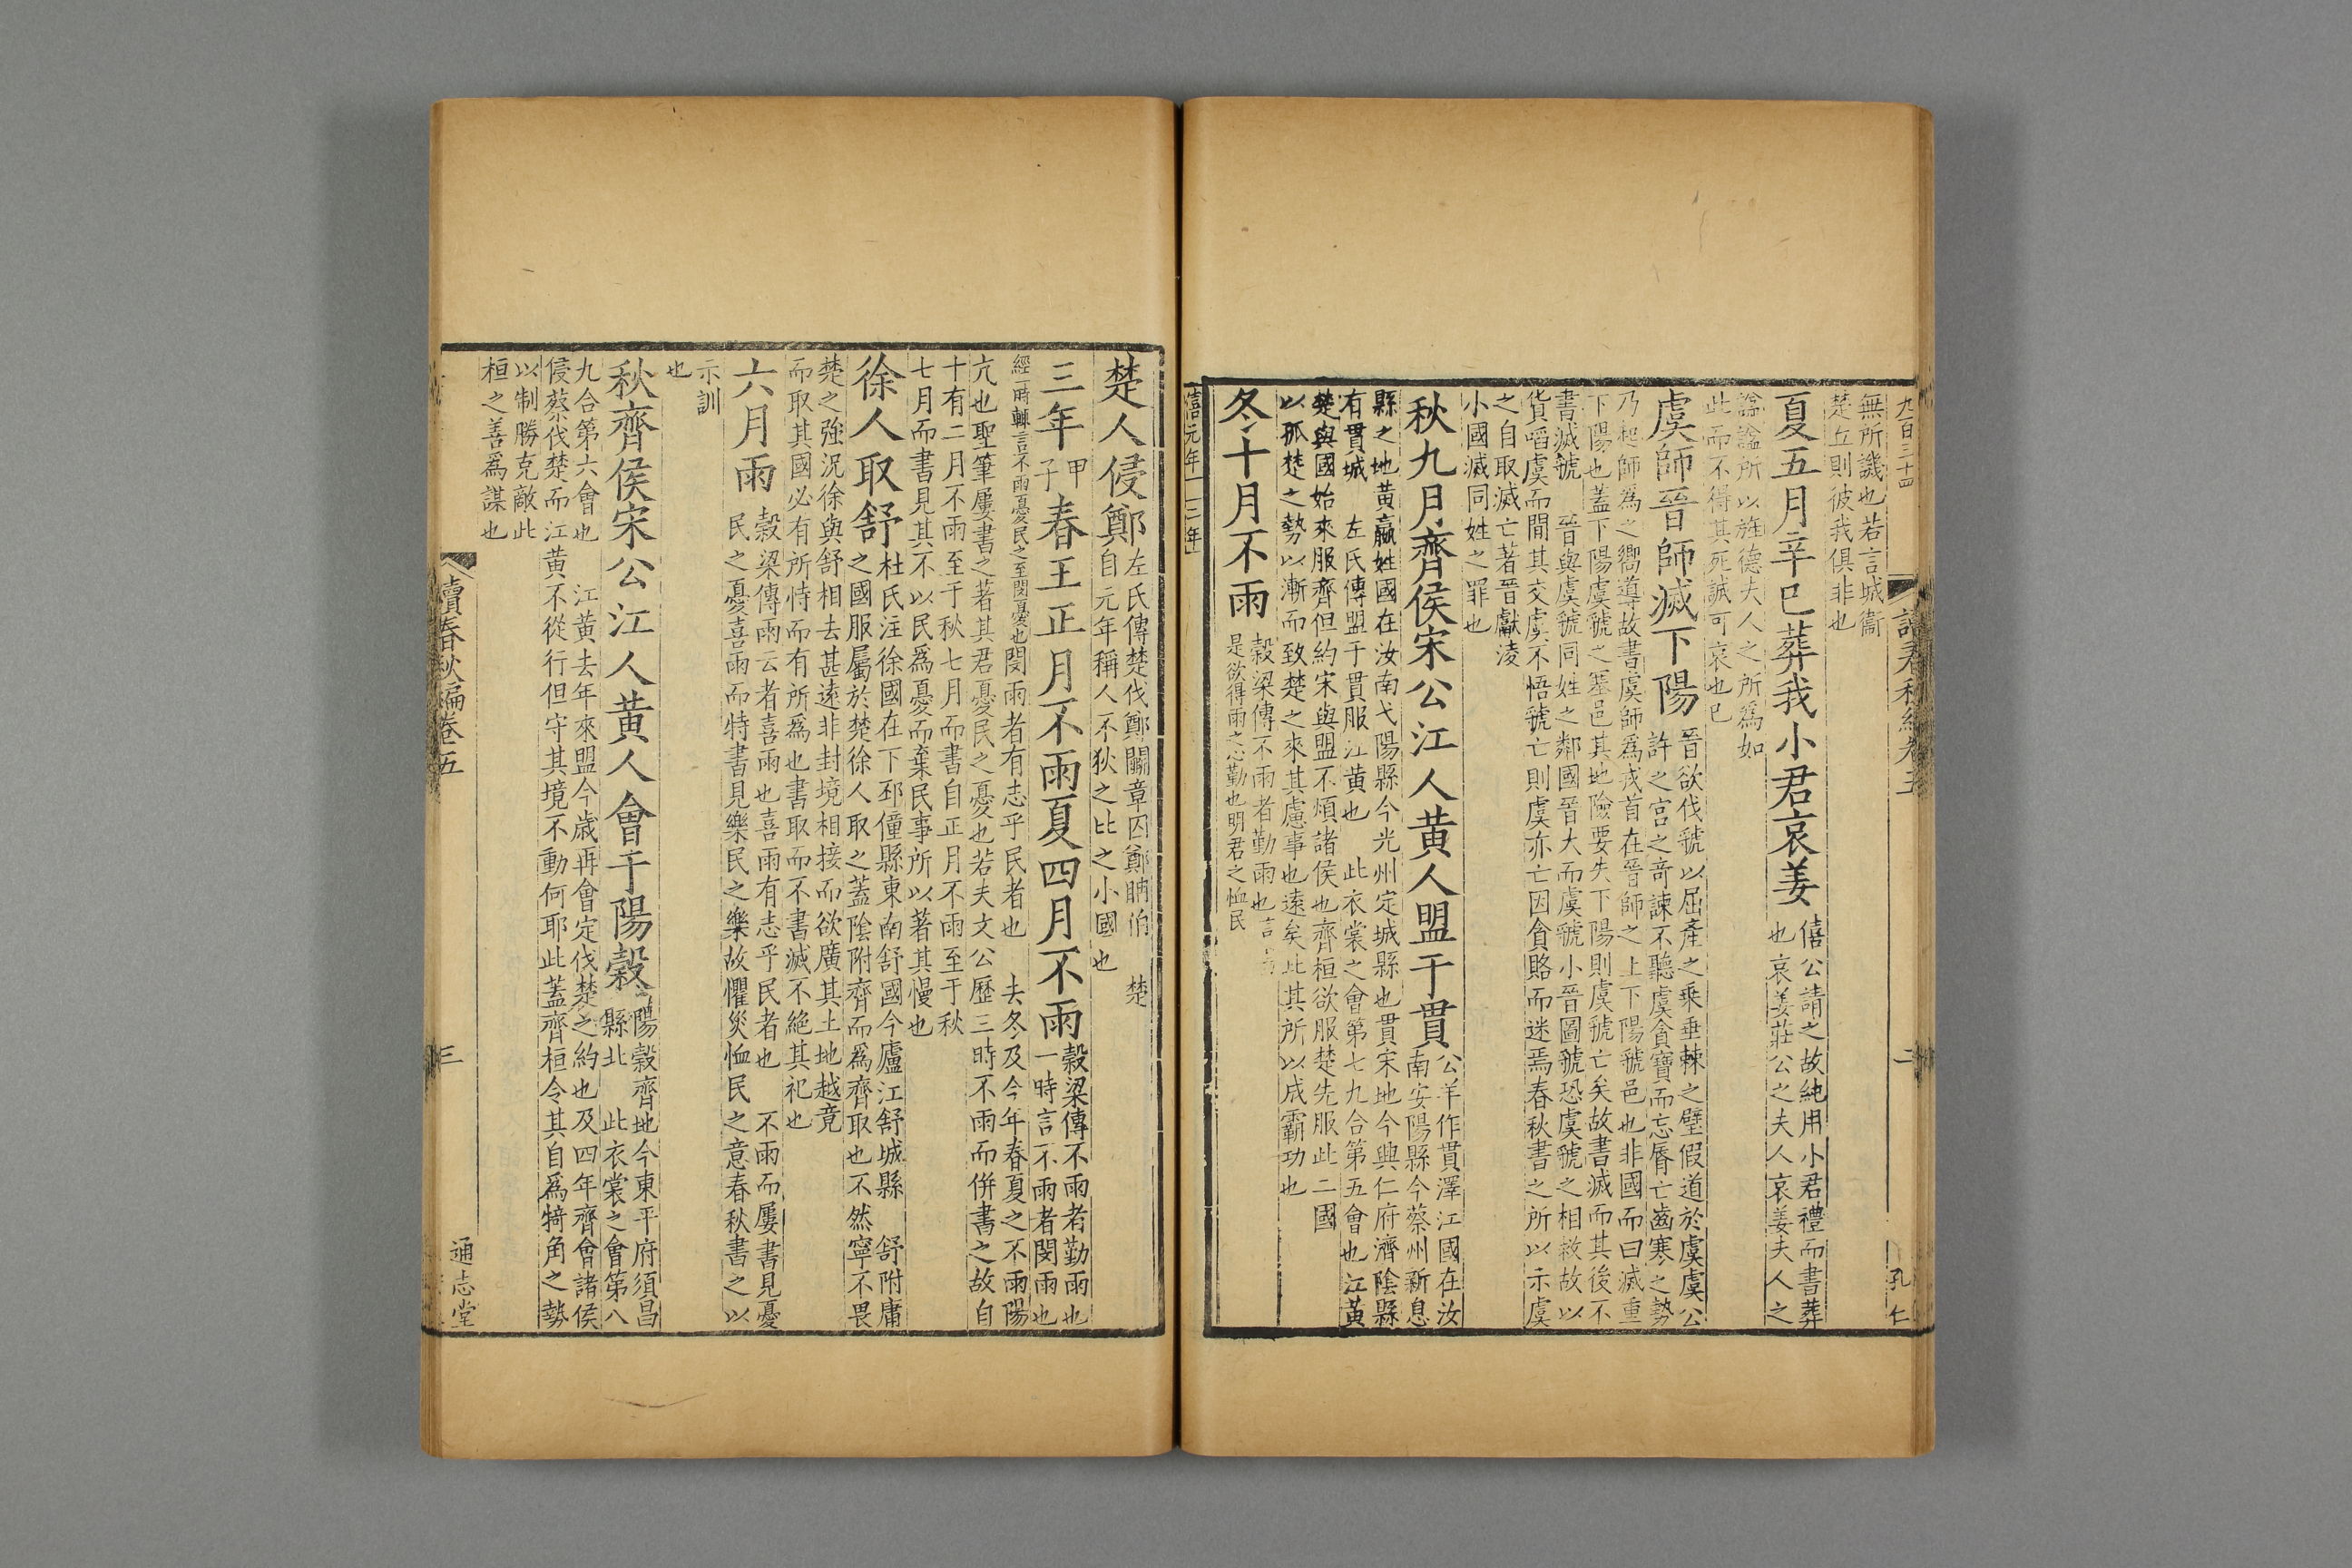 九百三十四
讀春秋編卷五
二
孔仁
無所譏也若言城衞
楚丘則彼我俱非也
夏五月辛巳葬我小君哀姜
僖公請之故純用小君禮而書葬
也哀姜莊公之夫人哀姜夫人之
諡諡所以旌德夫人之所爲如
此而不得其死誠可哀也已
虞師晉師滅下陽
晉欲伐虢以屈產之乘垂棘之璧假道於虞虞公
許之宮之奇諫不聽虞貪寶而忘脣亡齒寒之勢
乃起師爲之嚮導故書虞師爲戎首在晉師之上下陽虢邑也非國而曰滅重
下陽也蓋下陽虞虢之塞邑其地險要失下陽則虞虢亡矣故書滅而其後不
書滅虢 晉與虞虢同姓之鄰國晉大而虞虢小晉圖虢恐虞虢之相救故以
貨啗虞而間其交虞不悟虢亡則虞亦亡因貪賂而迷焉春秋書之所以示虞
之自取滅亡著晉獻淩
小國滅同姓之罪也
秋九月齊侯宋公江人黃人盟于貫
公羊作貫澤江國在汝
南安陽縣今蔡州新息
縣之地黃嬴姓國在汝南弋陽縣今光州定城縣也貫宋地今興仁府濟陰縣
有貫城 左氏傳盟于貫服江黃也 此衣裳之會第七九合第五會也江黃
楚與國始來服齊但約宋與盟不煩諸侯也齊桓欲服楚先服此二國
以孤楚之勢以漸而致楚之來其慮事也遠矣此其所以成霸功也
冬十月不雨
穀梁傳不雨者勤雨也言
是欲得雨之心勤也明君之恤民
僖元年 二年
楚人侵鄭
左氏傳楚伐鄭鬬章囚鄭聃伯 楚
自元年稱人不狄之比之小國也
三年甲子春王正月不雨夏四月不雨
穀梁傳不雨者勤雨也
一時言不雨者閔雨也
經一時輒言不雨憂民之至閔憂也閔雨者有志乎民者也 去冬及今年春夏之不雨陽
亢也聖筆屢書之著其君憂民之憂也若夫文公歷三時不雨而併書之故自
十有二月不雨至于秋七月而書自正月不雨至于秋
七月而書見其不以民爲憂而棄民事所以著其慢也
徐人取舒
杜氏注徐國在下邳僮縣東南舒國今廬江舒城縣 舒附庸
之國服屬於楚徐人取之蓋陰附齊而爲齊取也不然寧不畏
楚之強況徐與舒相去甚遠非封境相接而欲廣其土地越竟
而取其國必有所恃而有所爲也書取而不書滅不絶其祀也
六月雨
穀梁傳雨云者喜雨也喜雨有志乎民者也 不雨而屢書見憂
民之憂喜雨而特書見樂民之樂故懼災恤民之意春秋書之以
示訓
也
秋齊侯宋公江人黃人會于陽穀
陽穀齊地今東平府須昌
縣北 此衣裳之會第八
九合第六會也 江黃去年來盟今歲再會定伐楚之約也及四年齊會諸侯
侵蔡伐楚而江黃不從行但守其境不動何耶此蓋齊桓令其自爲犄角之勢
以制勝克敵此
桓之善爲謀也
讀春秋編卷五
三
通志堂